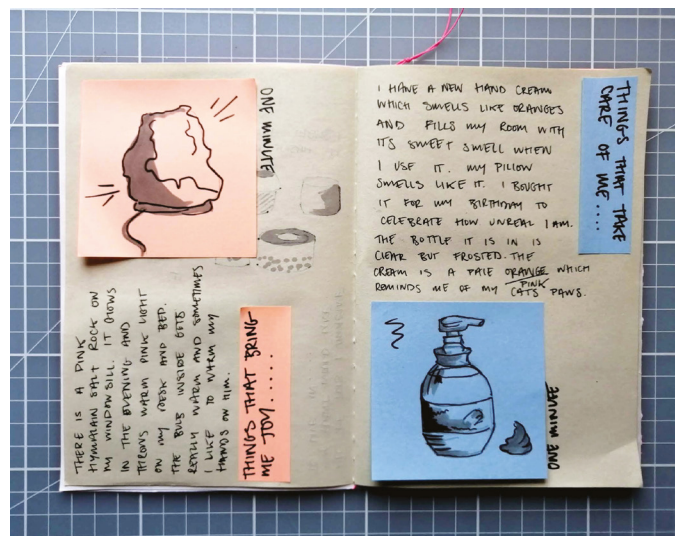 ONE MINUTE
THERE IS A PINK
HYMALAIN SALT ROCK ON
MY WINDOWSILL. IT GLOWS
IN THE EVENING AND
THROWS WARM PINK LIGHT
ON MY DESK AND BED.
THE BULB INSIDE GETS
REALLY WARM AND SOMETIMES
I LIKE TO WARM MY
HANDS ON HIM.
THINGS THAT BRING
ME JOY.....
I HAVE A NEW HAND CREAM
WHICH SMELLS LIKE ORANGES
AND FILLS MY ROOM WITH
ITS SWEET SMELL WHEN
I USE IT. MY PILLOW
SMELLS LIKE IT. I BOUGHT
IT FOR MY BIRTHDAY TO
CELEBRATE HOW UNREAL I AM.
THE BOTTLE IT IS IN IS
CLEAR BUT FROSTED. THE
CREAM IS A PALE ORANGE WHICH
REMINDS ME OF MY CATS PINK PAWS.
THINGS THAT TAKE
CARE OF ME....
ONE MINUTE